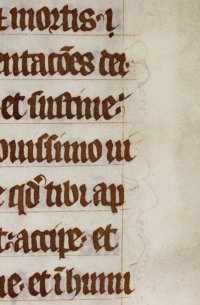 t mortis· ⁊
entacões der
et sustine·
ouissimo ui
e qđ tibi ap
t· accipe· et
ne· et ĩ humi